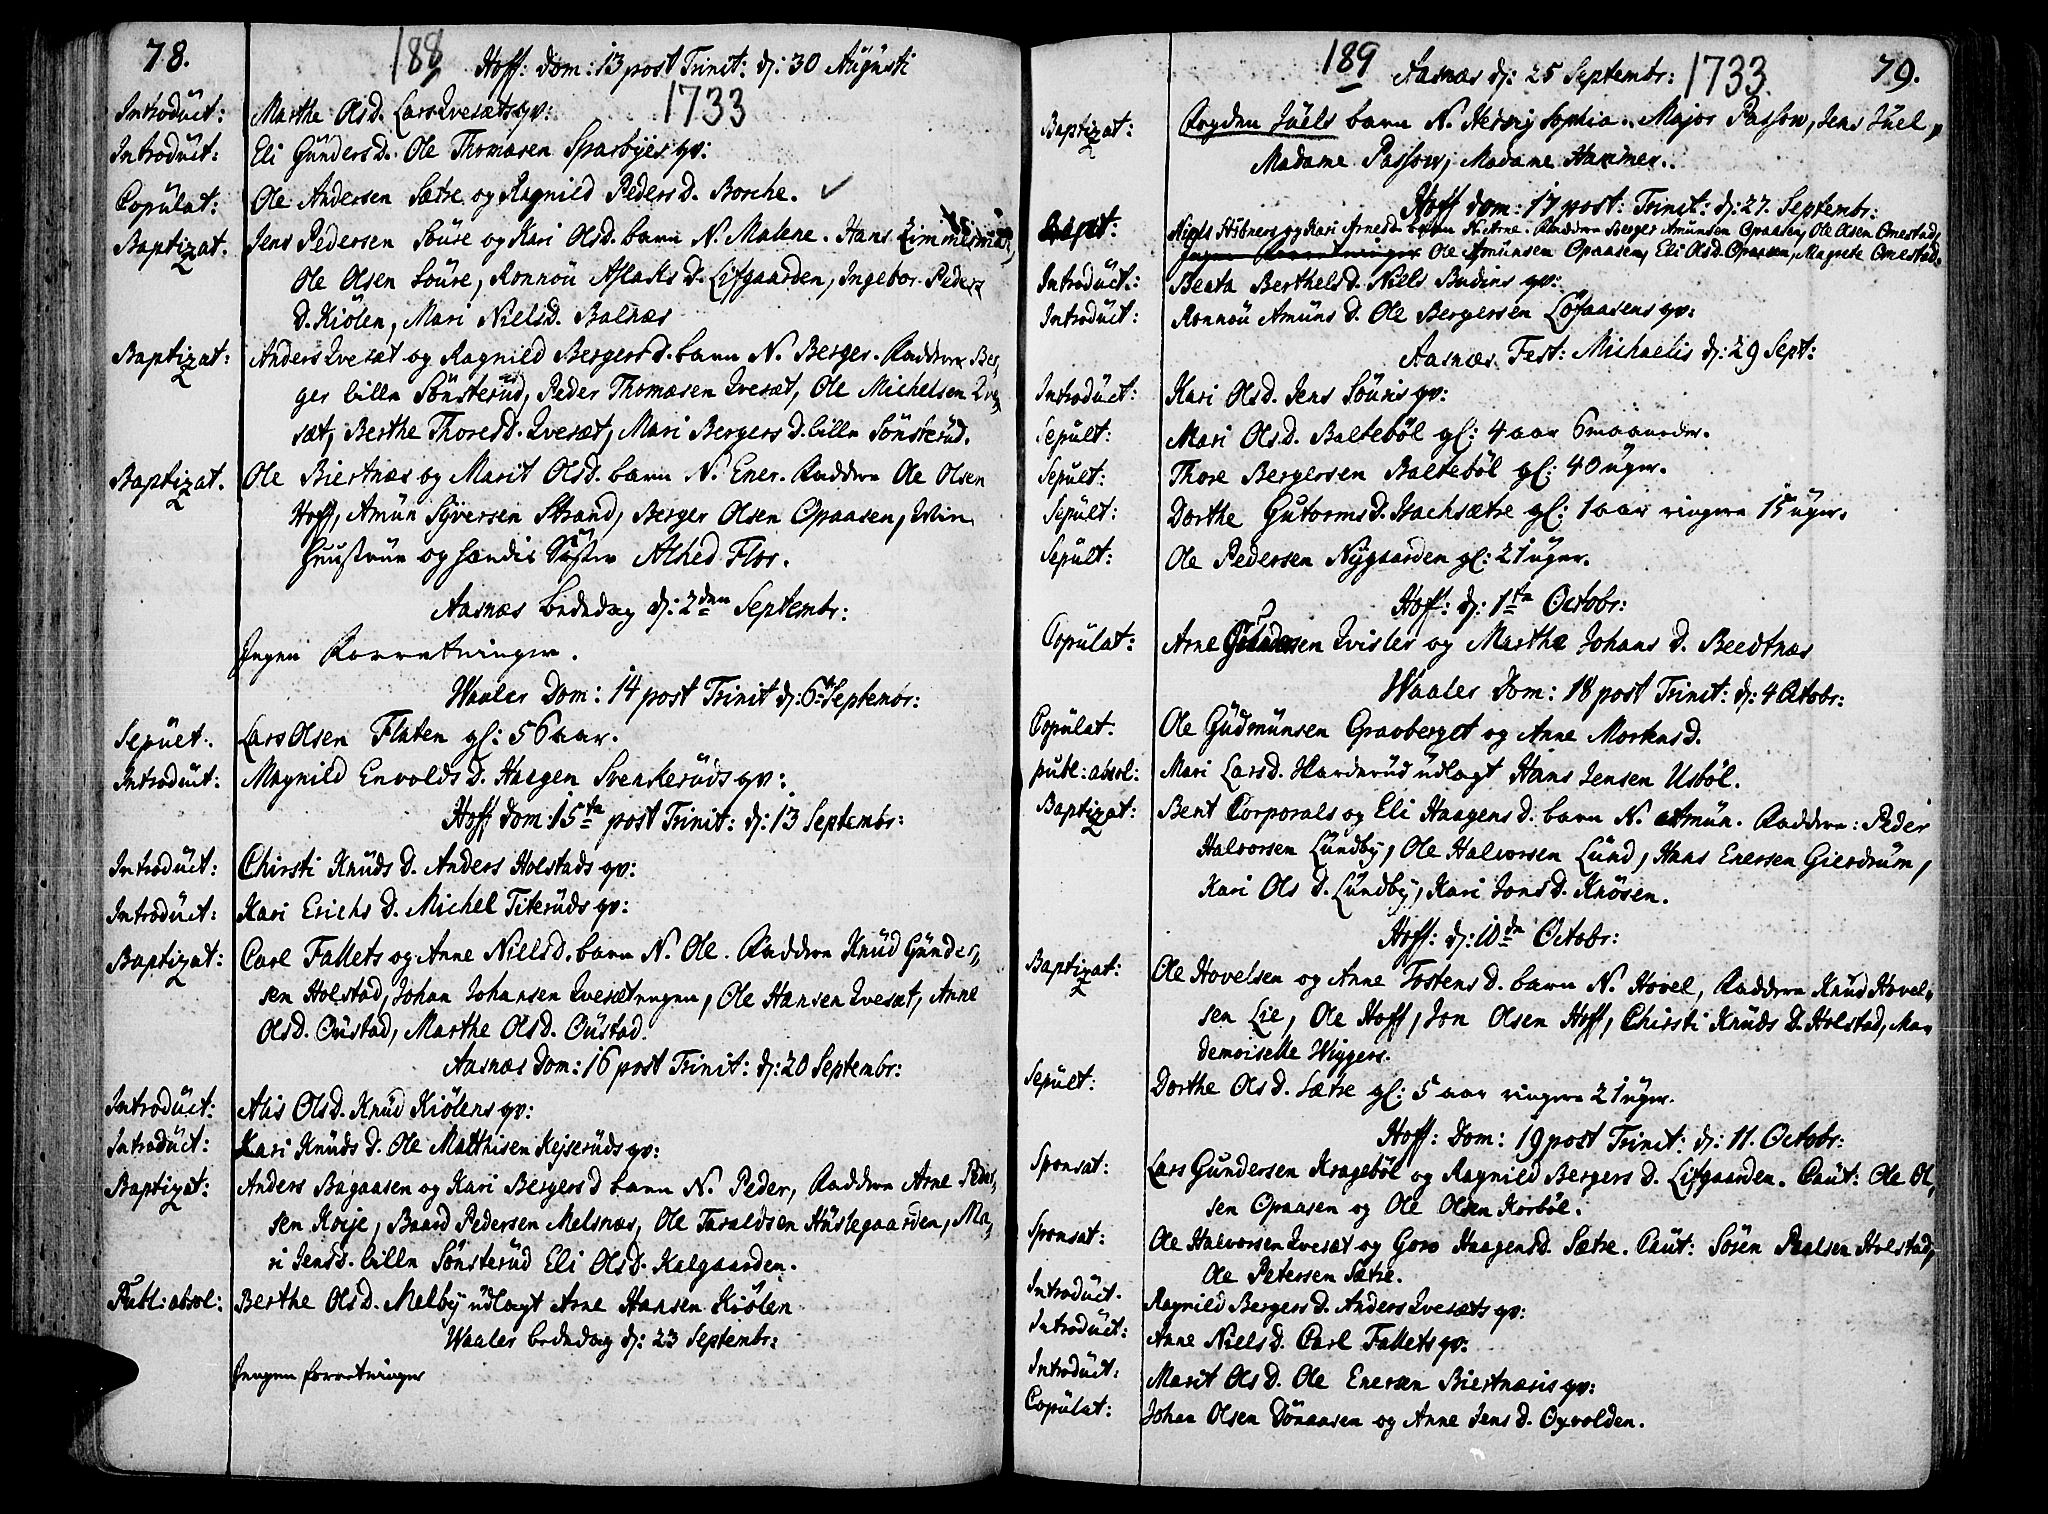 78.
188
Hoff: Dom: 13 post Trinit: d: 30 Augusti
1733
Introduct: Marthe Olsd. Lars Qvesæts qv:
Introduct: Eli Gunders D. Ole Thomesen Sparbyes qv:
Copulat: Ole Andersen Sætre og Ragnild Peders D. Borche.
Baptizat. Jens Pedersen Soure og Kari Olsd. barn N. Malene. Hans Zimmerman,
Ole Olsen Soure, Ronnou Aslaks D. Lifgaarden, Ingebor Peders
D. Kiølen, Mari Nielsd. Balnæs
Baptizat: Anders Qvesæt og Ragnild Bergersd. barn N. Berger. Faddere Ber,
ger lille Sønsterud, Peder Thomesen Qvesæt, Ole Michelsen Qve,
sæt, Berthe Thoresd. Qvesæt, Mari Bergers D. lille Sønsterud.
Baptizat. Ole Biertnæs og Marit Olsd. barn N. Ener. Faddere Ole Olsen
Hoff, Amun Syversen Strand, Berger Olsen Opaasen, Min
Huustrue og hendis Søster Alhed Flor.
Aasnæs bededag d: 2den Septembr:
Ingen Forretninger.
Waaler Dom: 14 post Trinit d: 6te Septembr:
Sepult: Lars Olsen Flaten gl: 56 aar.
Introduct: Magnild Envolds D. Haagen Svenkeruds qv:
Hoff Dom: 15te post Trinit: d: 13 Septembr:
Introduct: Chirsti Knuds D. Anders Holstads qv:
Introduct: Kari Erichs D. Michel Titeruds qv:
Baptizat: Carl Fallets og Anne Nielsd. barn N. Ole. Faddere Knud Gunder,
sen Holstad, Johan Johansen Qvesætengen, Ole Hansen Qvesæt, Anne
Olsd. Oustad, Marthe Olsd. Oustad.
Aasnæs Dom: 16 post Trinit: d: 20 Septembr:
Introduct: Alis Olsd. Knud Kiølens qv:
Introduct: Kari Knuds D. Ole Matthisen Kejseruds qv:
Baptizat: Anders Bagaasen og Kari Bergersd barn N. Peder, Faddere Arne Peder,
sen Koije, Baard Pedersen Melsnæs, Ole Taraldsen Huslegaarden, Ma,
ri Jensd. lille Sønsterud Eli Olsd. Kalgaarden.
Publ: absol: Berthe Olsd. Melby udlagt Arne Hansen Kiølen
Waaler bededag d: 23 Septembr:
Ingen forretninger
189
Aasnæs d: 25 Septembr:
1733.
79.
Baptizat: Fogden Juels barn N. Hedvig Sophia. Major Passow, Jens Juel,
Madame Passow, Madame Hammer.
Hoff Dom: 17 post: Trinit: d: 27. Septembr:
Bapt: Niels Hübners og Kari Arnesd. barn N. Arne. Faddere Berger Amunsen Opaasen, Ole Olsen Omestad,
Ingen Forretninger Ole Amunsen Opaasen, Eli Olsd. Opaasen, Magrete Omestad.
Introduct: Beata Berthelsd. Niels Budins qv:
Introduct: Ronnou Amuns D. Ole Bergersen Løfaasens qv:
Aasnæs. Fest: Michaelis d: 29 Sept:
Introduct: Kari Olsd. Jens Souris qv:
Sepult: Mari Olsd. Baltebøl gl: 4 aar 6 maaneder.
Sepult: Thore Bergersen Baltebøl gl: 40 uger.
Sepult: Dorthe Gutorms D. Hachsætre gl: 1 aar ringere 15 uger.
Sepult: Ole Pedersen Nygaarden gl: 21 uger.
Hoff: d: 1te Octobr:
Copulat: Arne Gundersen Qvisler og Marthe Johans D. Beedtnæs
Waaler Dom: 18 post Trinit: d: 4 Octobr:
Copulat. Ole Gudmunsen Gravberget og Anne Mortensd.
publ: absol: Mari Larsd. Harderud udlagt Hans Jensen Usbøl.
Baptizat: Bent Corporals og Eli Haagens D. barn N. Amun. Faddere: Peder
Halvorsen Lundby, Ole Halvorsen Lund, Hans Enersen Gierdrum,
Kari Ols D. Lundby, Kari Jonsd. Knøsen.
Hoff: d: 10de Octobr:
Baptizat: Ole Hovelsen og Anne Tostens D. barn N. Hovel, Faddere Knud Hovel,
sen Lie, Ole Hoff, Jon Olsen Hoff, Chirsti Knuds D. Holstad, Ma,
demoiselle Wiggers.
Sepult: Dorthe Ols D. Sætre gl: 5 aar ringere 21 uger.
Hoff: Dom: 19 post Trinit: d: 11. Octobr:
Sponsat: Lars Gundersen Kragebøl og Ragnild Bergers D. Lifgaarden. Caut: Ole Ol,
sen Opaasen og Ole Olsen Korbøl.
Sponsat: Ole Halvorsen Qvesæt og Goro Haagensd. Sætre. Caut: Søren Paulsen Holstad,
Ole Petersen Sætre.
Introduct. Ragnild Bergers D. Anders Qvesæts qv:
Introduct: Anne Niels D. Carl Fallets qv:
Introduct: Marit Ols D. Ole Enersen Biertnæsis qv:
Copulat: Johan Olsen Dønaasen og Anne Jens D. Oxvolden.